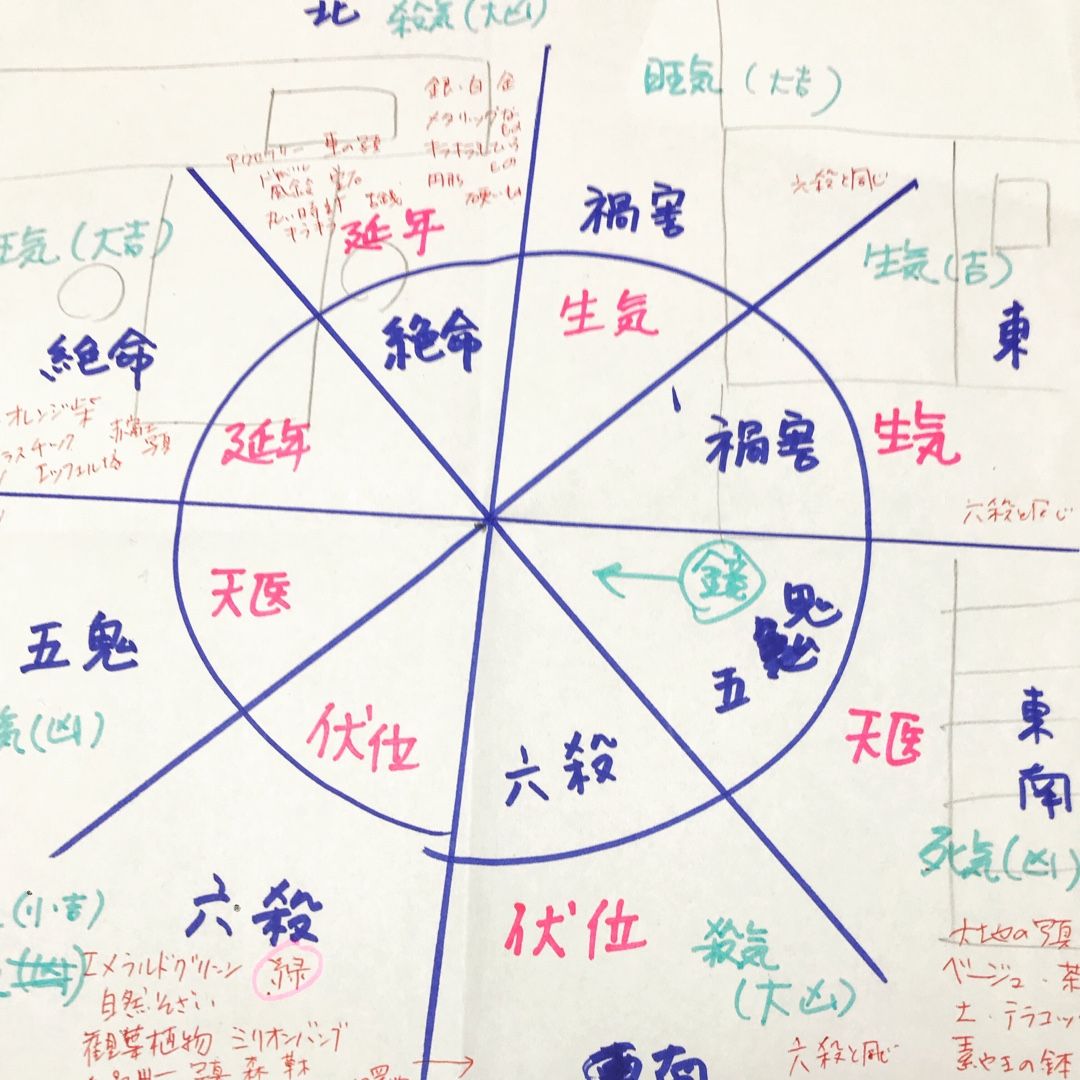 北 殺気(大凶)
旺気 (大吉)
銀・白 金
メタリックな
キラキラしている
円形 硬いもの
車の写真
丸い時計
キラキラ
延年
禍害
六殺と同じ
旺気(大吉)
生気(吉)
絶命
絶命
生気
東
オレンジ 紫
エッフェル塔
延年
禍害
生気
六殺と同じ
天医
鏡
五鬼
五鬼
気(凶)
伏位
六殺
天医
東
南
死気(凶)
(小吉)
六殺
伏位
殺気
(大凶)
エメラルドグリーン 緑
自然そざい
観葉植物 ミリオンバンブ
写真 森
六殺と同じ
大地の写真
ベージュ・茶
土・テラコッ
素やきの鉢